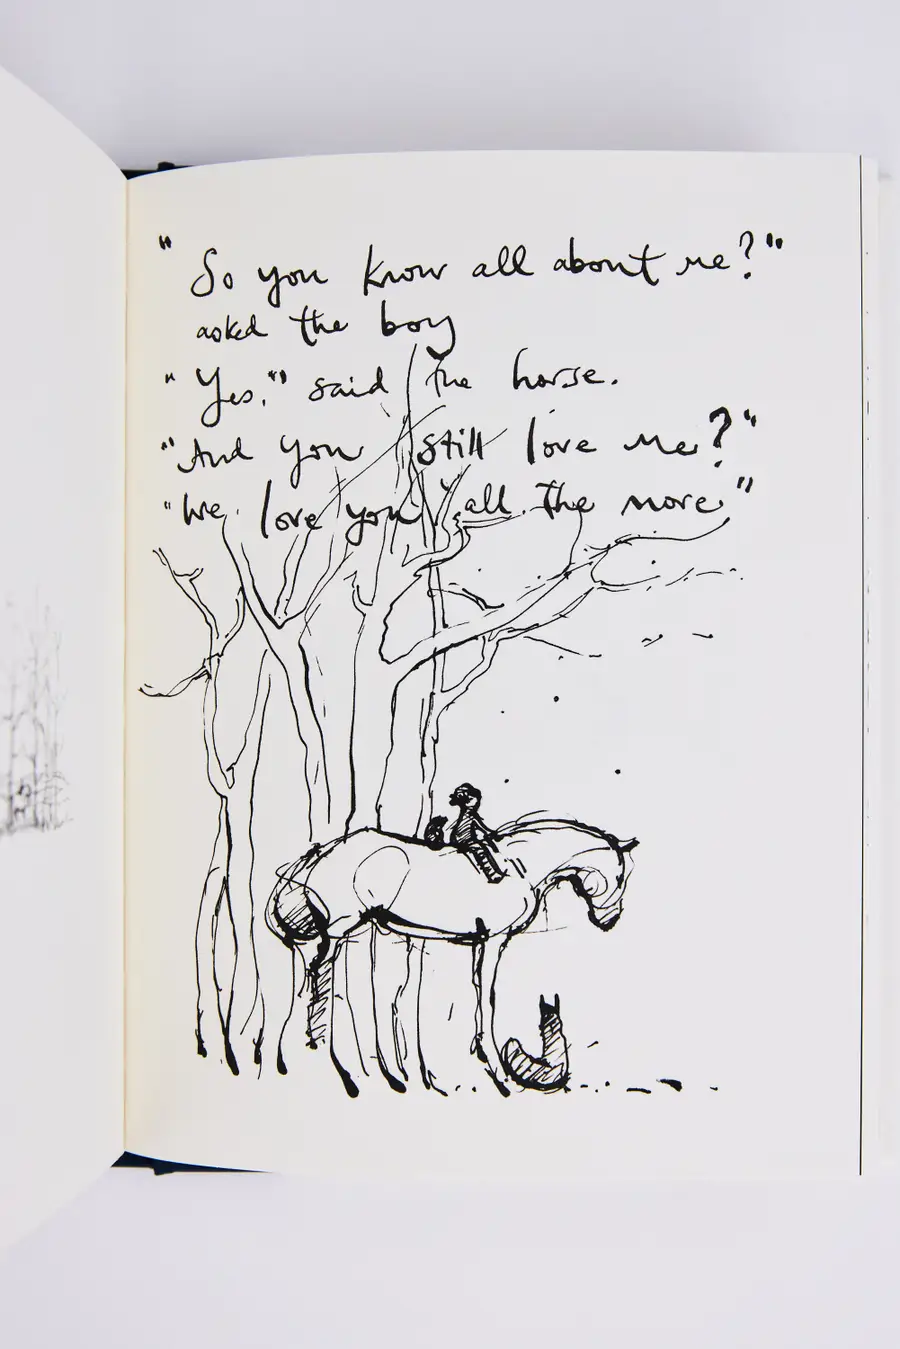 "So you know all about me?"
asked the boy
"Yes." said the horse.
"And you still love me?"
"We love you all the more"